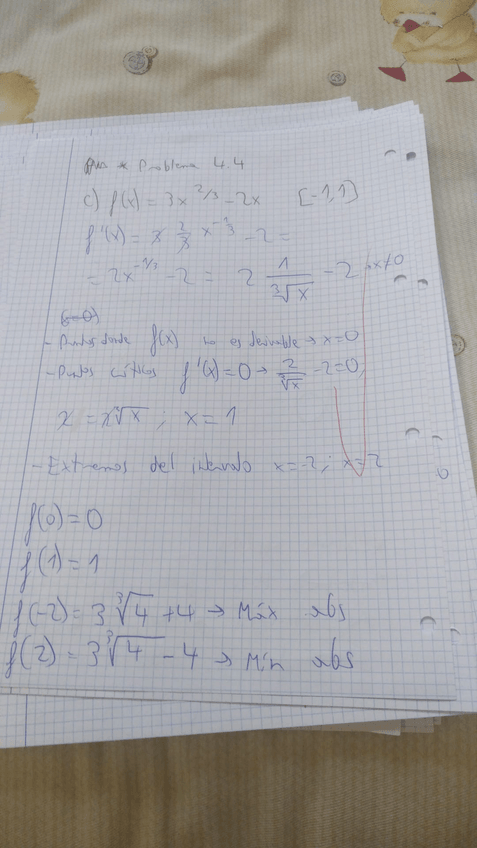 Problema 4.4
c) f(x) = 3x^2/3 - 2x [-1,1]
f'(x) = 3 2/3 x^-1/3 - 2 =
= 2x^-1/3 - 2 = 2 1/∛x - 2 → x≠0
- Puntos donde f(x) no es derivable → x=0
- Puntos críticos f'(x)=0 → 2/∛x - 2=0;
2 = 2∛x ; x = 1
- Extremos del intervalo x=-2 ; x=2
f(0) = 0
f(1) = 1
f(-2) = 3∛4 + 4 → Máx abs
f(2) = 3∛4 - 4 → Min abs